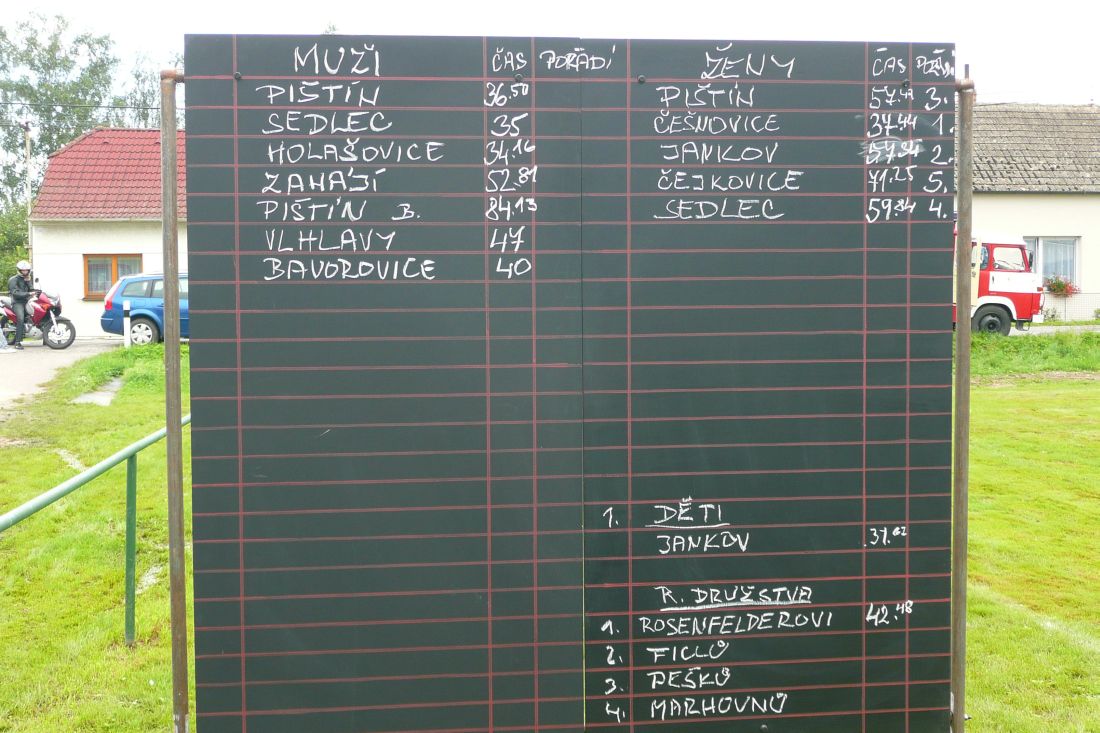 MUŽI ČAS POŘADÍ
PIŠTÍN 36.50
SEDLEC 35
HOLAŠOVICE 34.16
ZAHÁJÍ 52.81
PIŠTÍN B. 84.13
VLHLAVY 47
BAVOROVICE 40
ŽENY ČAS
PIŠTÍN 3.
ČEŠNOVICE 37.44 1.
JANKOV 2.
ČEJKOVICE 71.25 5.
SEDLEC 59.84 4.
1. DĚTI
JANKOV
R. DRUŽSTVA
1. ROSENFELDEROVI 42.48
2. FICLŮ
3. PEŠKŮ
4. MARHOVNŮ